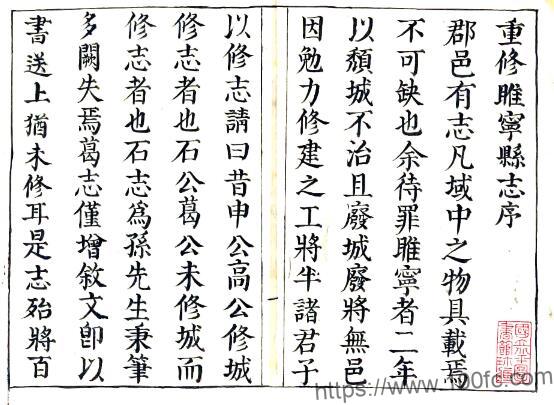 重修睢寧縣志序
郡邑有志凡域中之物具載焉
不可缺也余待罪睢寧者二年
以頽城不治且廢城廢將無邑
因勉力修建之工將半諸君子
以修志請曰昔申公高公修城
修志者也石公葛公未修城而
修志者也石志爲孫先生秉筆
多闕失焉葛志僅增敘文卽以
書送上猶未修耳是志殆將百
https://www.100fc.com